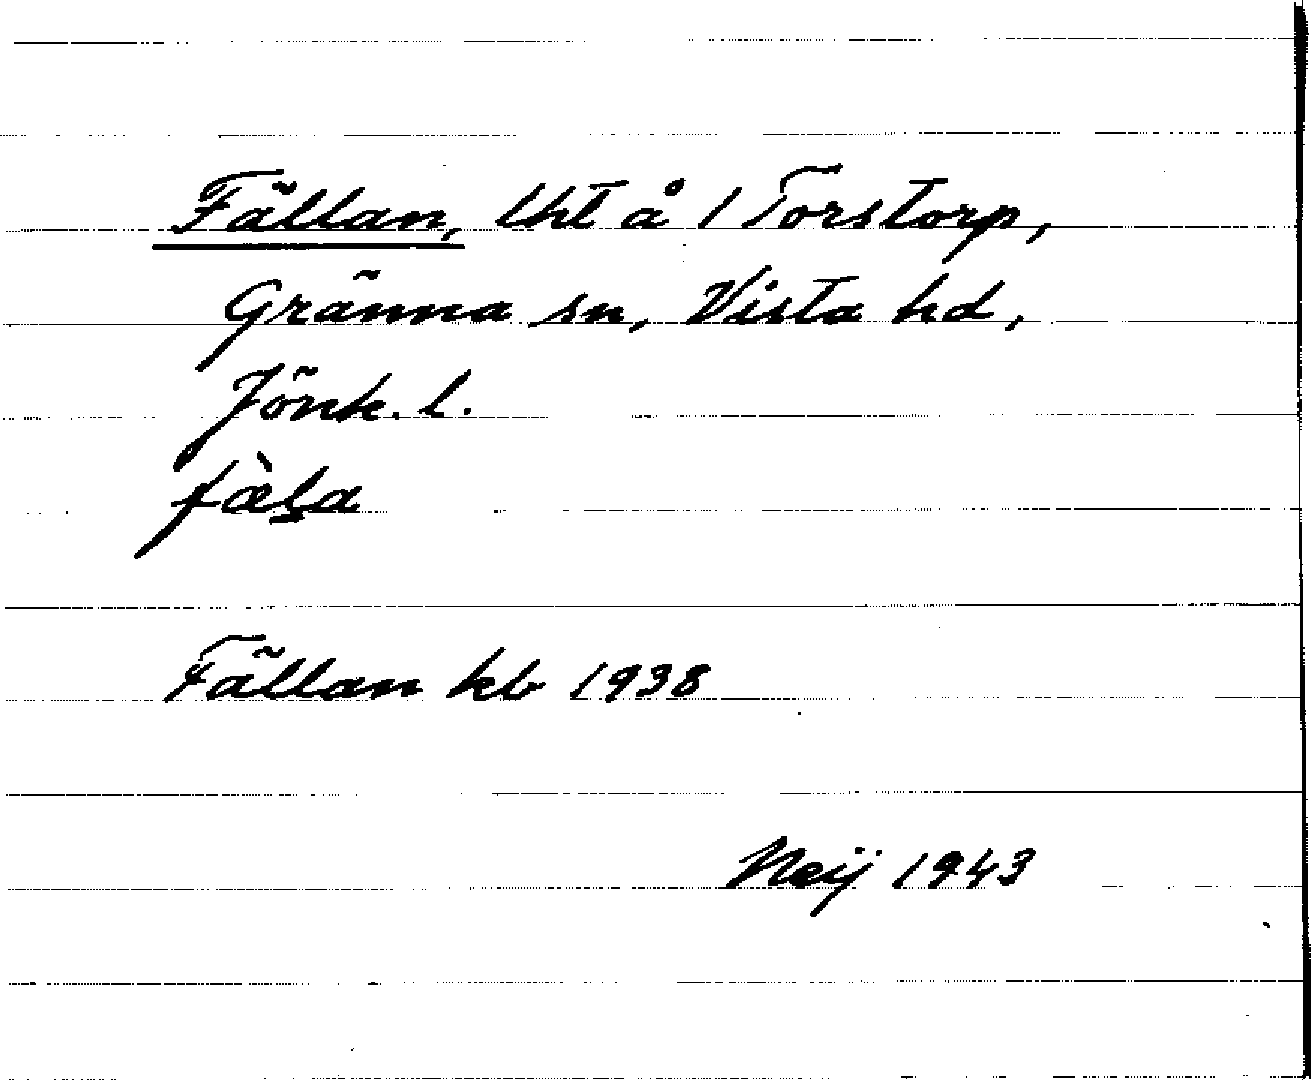 Fällan, lht å 1 Torstorp,
Gränna sn, Vista hd,
Jönk. l.
fæ̀l̠a
Fällan kb 1938
Neij 1943